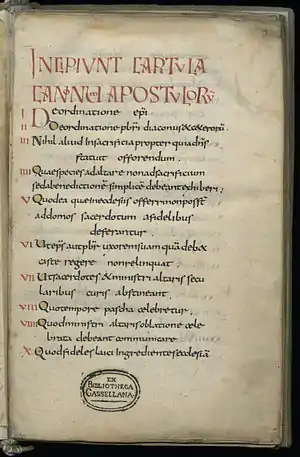 INCIPIUNT CAPITULA
CANONUM APOSTULORŪ
I De ordinatione epī
II De ordinatione pbri diaconus &c&erorū
III Nihil aliud In sacrificia propter quod dn̄s
statuit offerendum.
IIII Quae species ad altare non ad sacrificium
sed ad benedictionē simplicē debeant exhiberi;
V Quod ea quae in eclesiis offerri non possunt
ad domos sacerdotum a fidelibus
deferantur.
VI Ut eps aut pbr uxorem suam quā debet
caste regere non relinquat.
VII Ut sacerdotes & ministri altaris secu
laribus curis abstineant.
VIII Quo tempore pascha celebretur.
VIIII Quod ministri altaris oblatione cele
brata debeant communicare
X Quod fideles laici ingredientes ecclesiā
EX
BIBLIOTHECA
CASSELLANA.